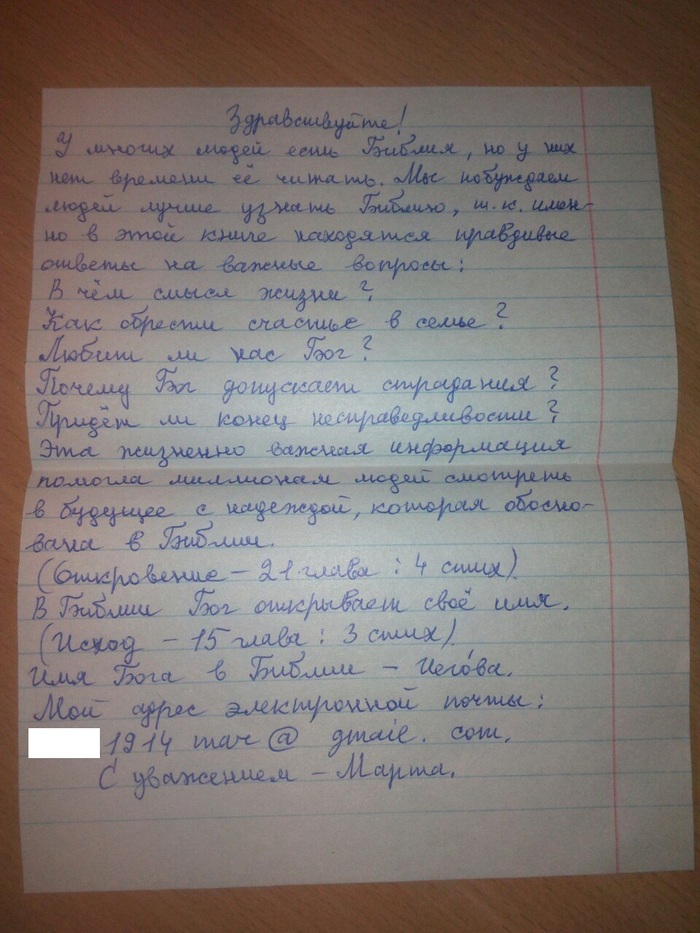 Здравствуйте!
У многих людей есть Библия, но у них
нет времени её читать. Мы побуждаем
людей лучше узнать Библию, т.к. имен-
но в этой книге находятся правдивые
ответы на важные вопросы:
В чём смысл жизни?
Как обрести счастье в семье?
Любит ли нас Бог?
Почему Бог допускает страдания?
Придёт ли конец несправедливости?
Эта жизненно важная информация
помогла миллионам людей смотреть
в будущее с надеждой, которая обосно-
вана в Библии.
(Откровение – 21 глава : 4 стих).
В Библии Бог открывает своё имя.
(Исход – 15 глава : 3 стих).
Имя Бога в Библии – Иего́ва.
Мой адрес электронной почты:
1914 mar @ gmail. com.
С уважением – Марта.